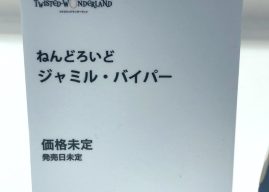 TWISTED-WONDERLAND
ねんどろいど
ジャミル・バイパー
価格未定
発売日未定